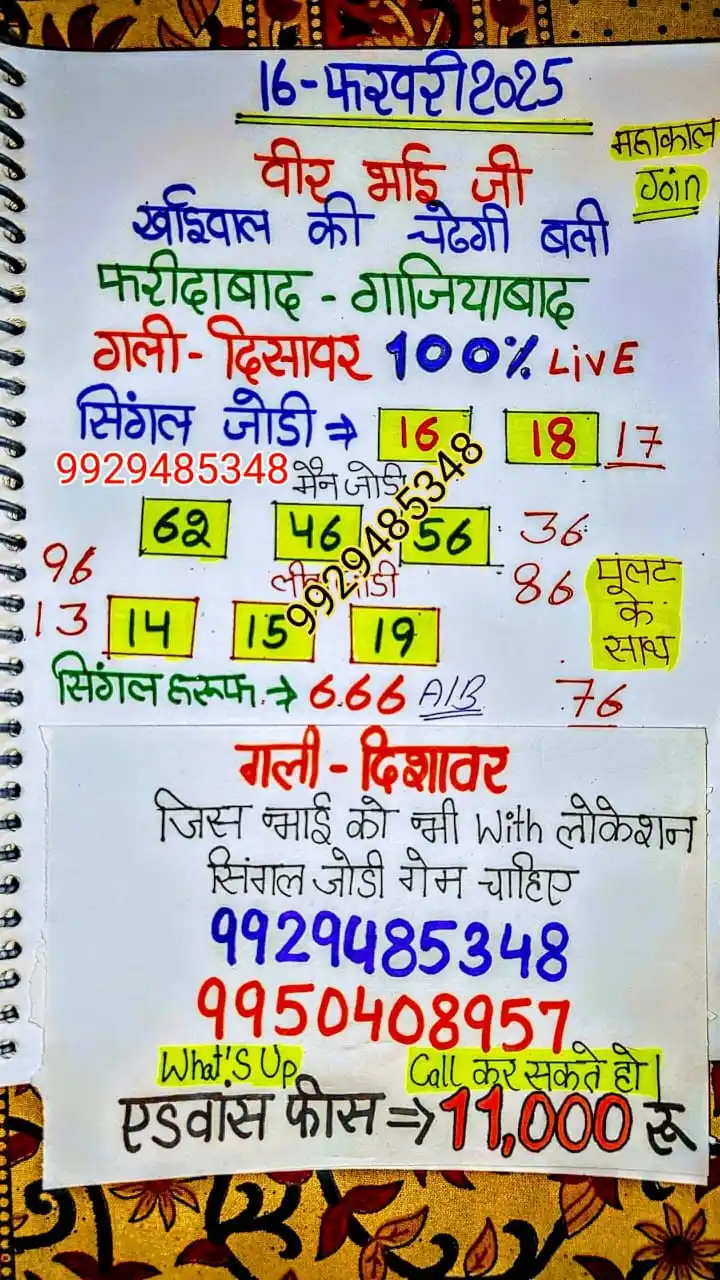 16-फरवरी 2025
महाकाल
Join
वीर भाई जी
खाईवाल की चढेगी बली
फरीदाबाद - गाजियाबाद
गली - दिसावर 100% LiVE
सिंगल जोडी ⇒ 16 18 17
9929485348
मैन जोडी
9929485348
62 46 56 36
96
86
13 14 15 19
पलट
के
साथ
सिंगल हरूफ.→ 6.66 A/B 76
गली - दिशावर
जिस भाई को भी With लोकेशन
सिंगल जोडी गेम चाहिए
9929485348
9950408957
What'S Up Call कर सकते हो।
एडवांस फीस ⇒ 11,000 रू